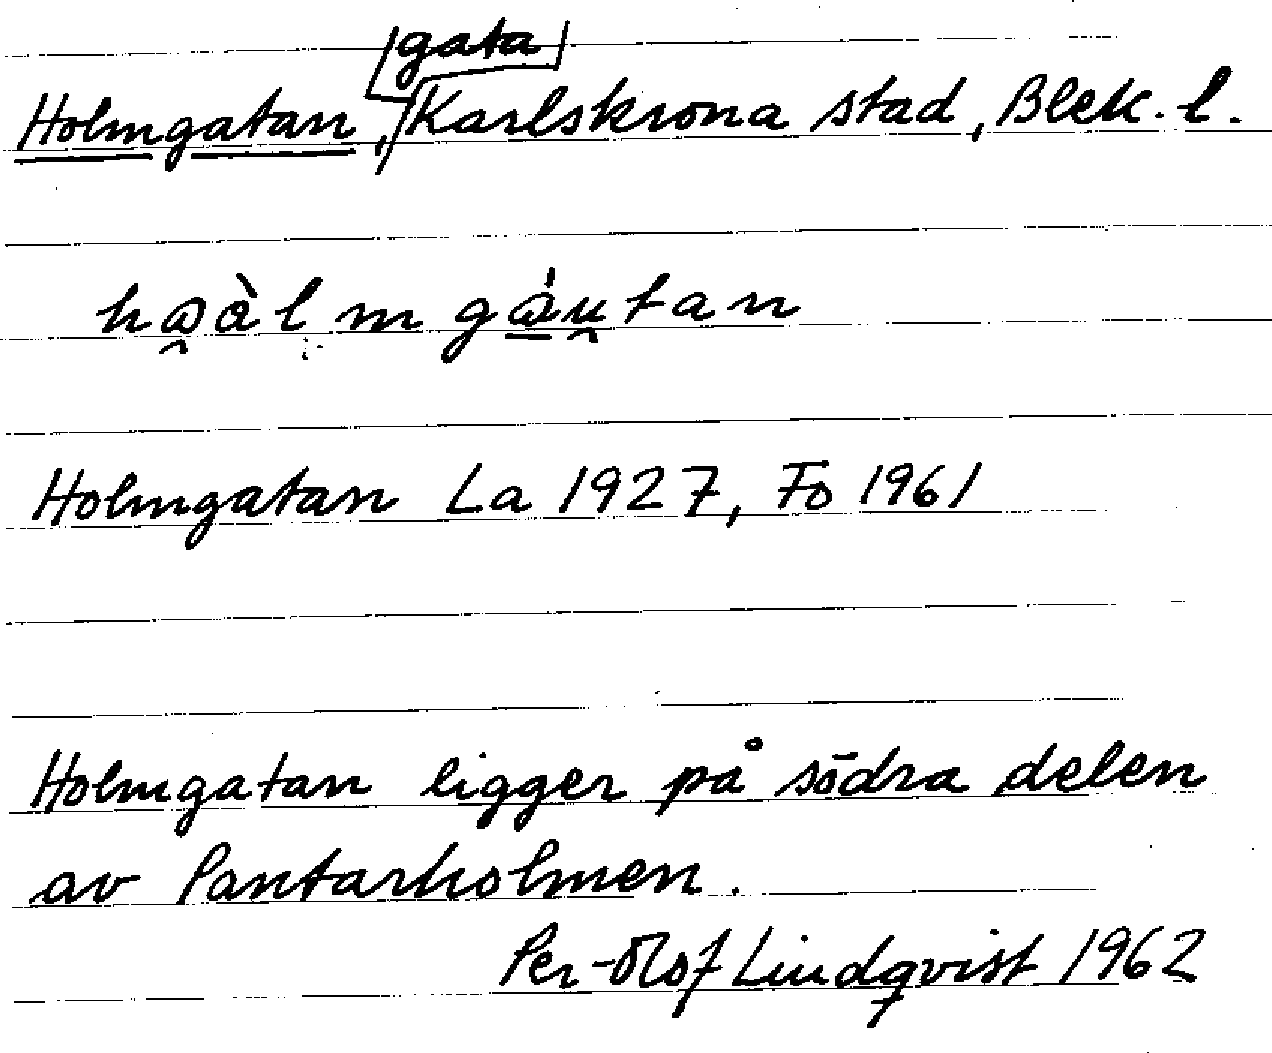 gata
Holmgatan, Karlskrona stad, Blek. l.
Holmgatan La 1927, Fo 1961
Holmgatan ligger på södra delen
av Pantarholmen.
Per-Olof Lindqvist 1962